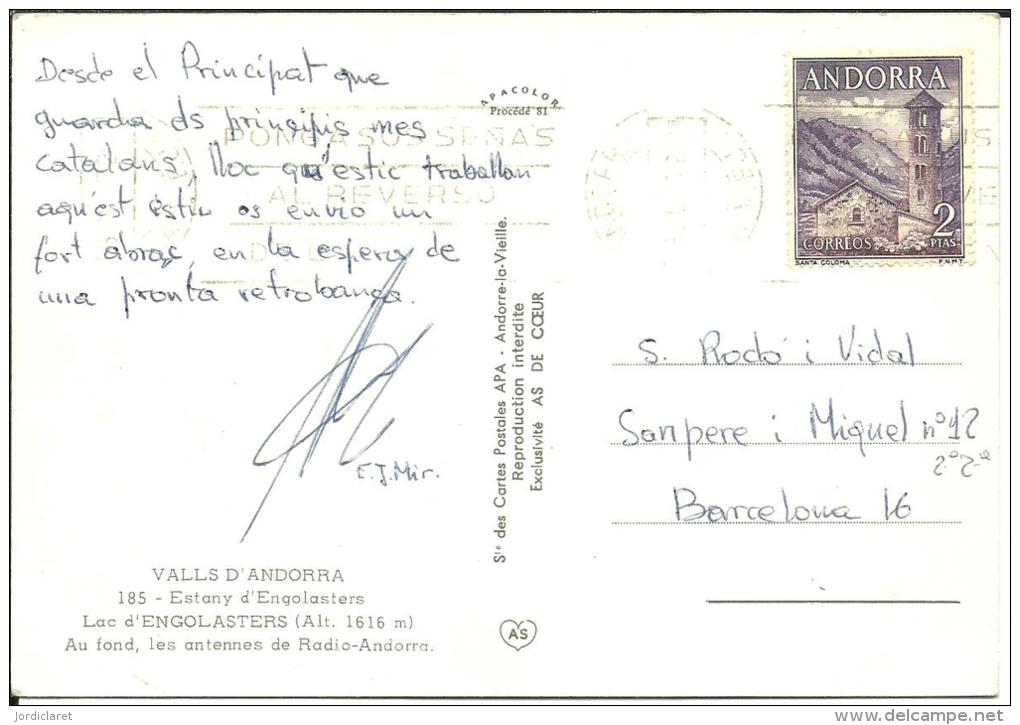 Desde el Principat que
guarda els principis mes
catalans, lloc qu'estic traballan
aquest estiu os envio un
fort abraç, en la espera de
una pronta retrobança.
E.J.Mir.
VALLS D'ANDORRA
185 - Estany d'Engolasters
Lac d'ENGOLASTERS (Alt. 1616 m)
Au fond, les antennes de Radio-Andorra.
APACOLOR
Procédé 81
Sté des Cartes Postales APA - Andorre-la-Vieille.
Reproduction interdite
Exclusivité AS DE CŒUR
AS
PONGA SUS SEÑAS
AL REVERSO
ANDORRA
CORREOS
2
PTAS
SANTA COLOMA
F.N.M.T.
S. Rodó i Vidal
Sanpere i Miquel nº 12
2º 2ª
Barcelona 16
jordiclaret
delcampe.net